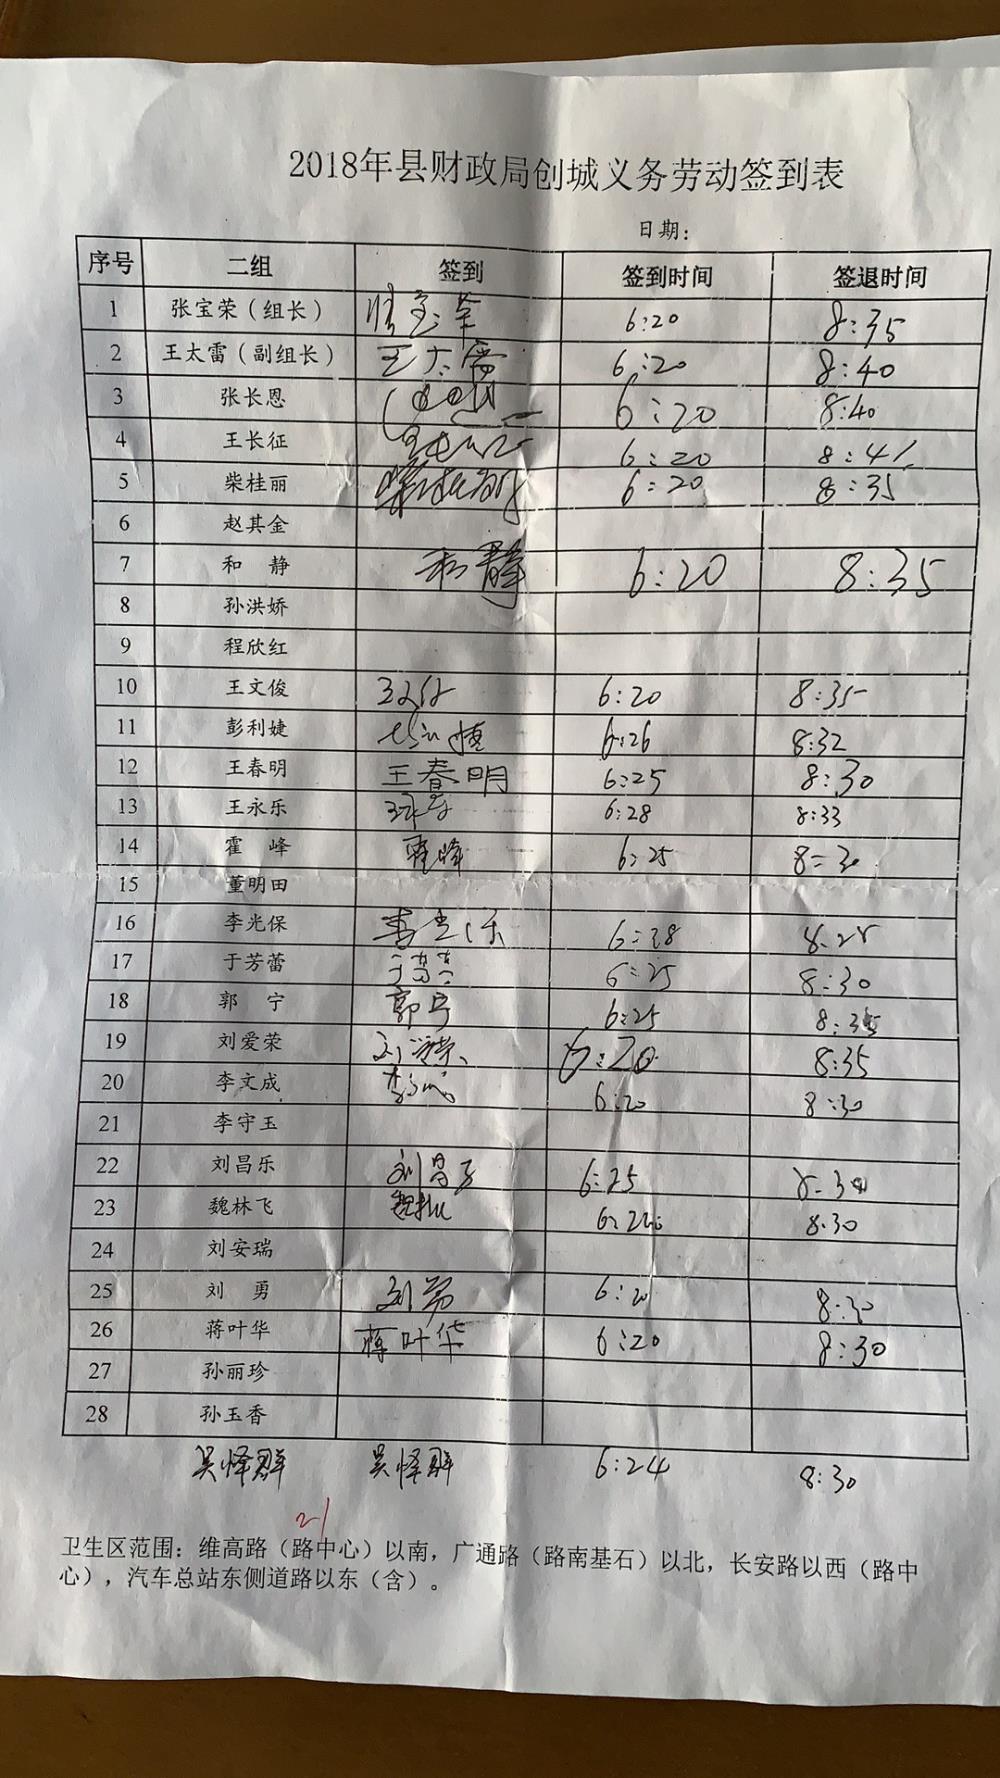 2018年县财政局创城义务劳动签到表
日期：
序号 二组 签到 签到时间 签退时间
1 张宝荣（组长） 张宝荣 6:20 8:35
2 王太雷（副组长） 王太雷 6:20 8:40
3 张长恩 6:20 8:40
4 王长征 王长征 6:20 8:41
5 柴桂丽 柴桂丽 6:20 8:35
6 赵其金
7 和 静 和静 6:20 8:35
8 孙洪娇
9 程欣红
10 王文俊 王文俊 6:20 8:35
11 彭利婕 6:26 8:32
12 王春明 王春明 6:25 8:30
13 王永乐 王永乐 6:28 8:33
14 霍 峰 霍峰 6:25 8:30
15 董明田
16 李光保 李光保 6:28
17 于芳蕾 6:25 8:30
18 郭 宁 郭宁 6:25 8:35
19 刘爱荣 刘爱荣 6:20 8:35
20 李文成 李文成 6:20 8:30
21 李守玉
22 刘昌乐 刘昌乐 6:25 8:30
23 魏林飞 魏林飞 8:30
24 刘安瑞
25 刘 勇 刘勇 6:20 8:30
26 蒋叶华 蒋叶华 6:20 8:30
27 孙丽珍
28 孙玉香
吴怿群 吴怿群 6:24 8:30
21
卫生区范围：维高路（路中心）以南，广通路（路南基石）以北，长安路以西（路中
心），汽车总站东侧道路以东（含）。